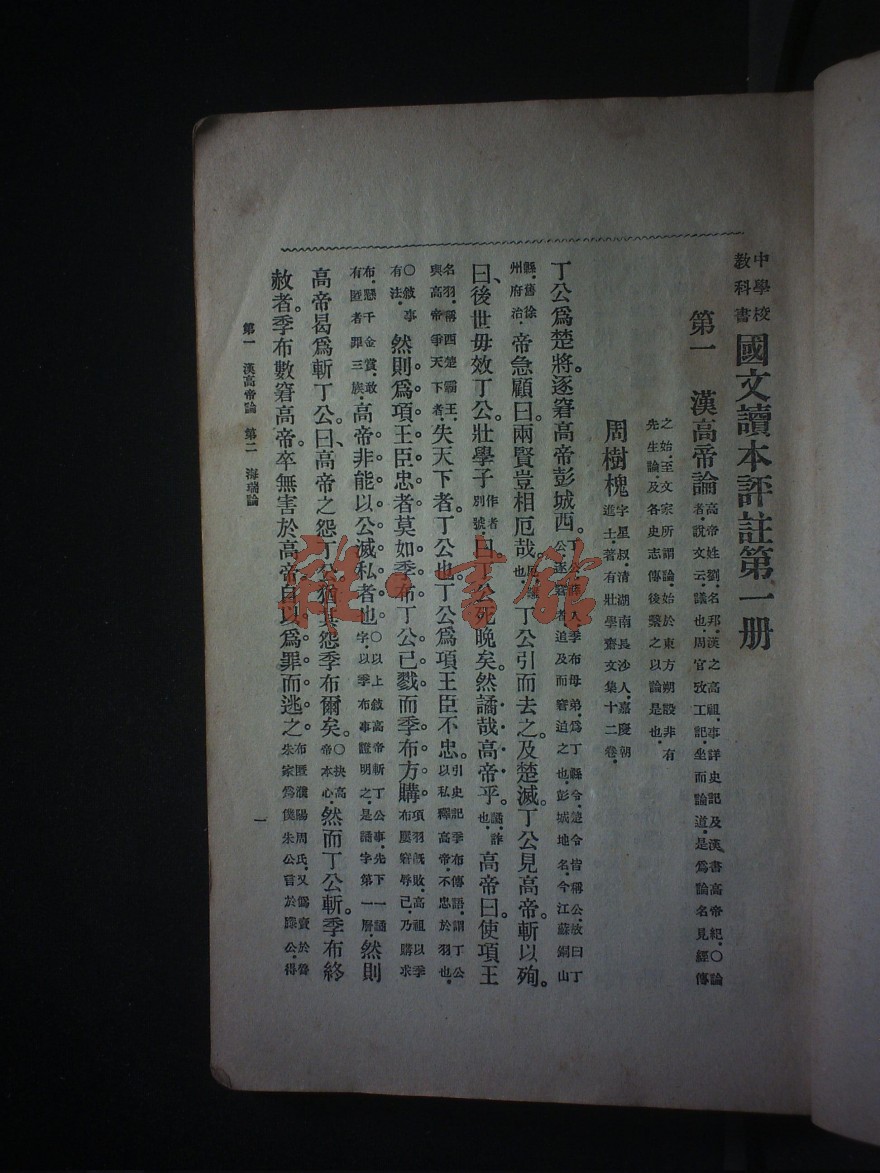 中學校
教科書
國文讀本評註第一册
第一　漢高帝論
高帝姓劉．名邦．漢之高祖．事詳史記及漢書高帝紀．○論
者．說文云．議也．周官攷工記．坐而論道．是爲論名見經傳
之始．至文家所謂論．始於東方朔設非有
先生論．及各史志傳後繫之以論是也．
周樹槐
字星叔．清湖南長沙人．嘉慶朝
進士．著有壯學齋文集十二卷．
丁公爲楚將。逐窘高帝彭城西。
丁公．薛人．季布母弟．爲丁縣令．楚令皆稱公．故曰丁
公．逐窘者．追及而窘迫之也．彭城．地名．今江蘇銅山
縣．舊徐
州府治．
帝急顧曰。兩賢豈相厄哉。
厄．難
也．
丁公引而去之。及楚滅。丁公見高帝。斬以殉。
曰、後世毋效丁公。壯學子
作者
別號．
曰。丁公死晚矣。然譎哉高帝乎。
譎．詐
也．
高帝曰。使項王
名羽．稱西楚霸王．
與高帝爭天下者．
失天下者。丁公也。丁公爲項王臣不忠。
引史記季布傳語．謂丁公
以私釋高帝．不忠於羽也．
○敘事
有法．
然則爲項王臣忠者莫如季布。丁公已戮而季布方購。
項羽旣敗．高祖以季
布屢窘辱已．乃購求
布．懸千金賞．敢
有匿者罪三族．
高帝非能以公滅私者也。
○以上敘高帝斬丁公事．先下一譎
字．以季布事證明之．是譎字第一層．
然則
高帝曷爲斬丁公。曰、高帝之怨丁公猶其怨季布爾矣。
○抉高
帝本心．
然而丁公斬。季布終
赦者。季布數窘高帝。卒無害於高帝。自以爲罪而逃之。
布匿濮陽周氏．又僞賣於魯
朱家爲僕．朱公言於滕公．得
第一　漢高帝論　第二　海瑞論
一
雜·書館